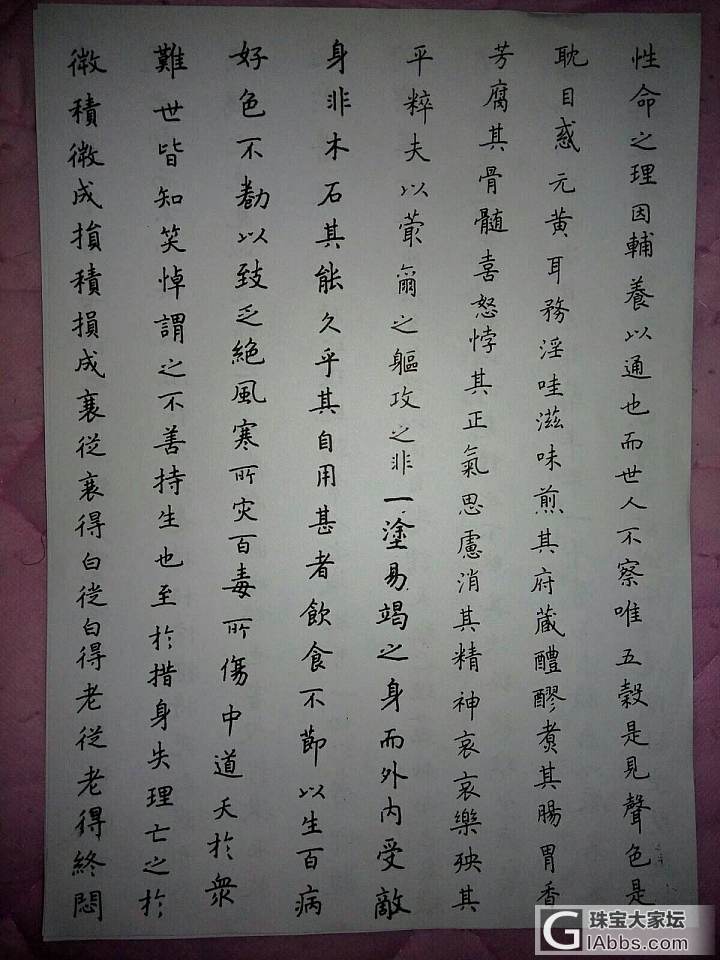 性命之理因輔養以通也而世人不察唯五穀是見聲色是
耽目惑元黄耳務淫哇滋味煎其府蔵醴醪煑其腸胃香
芳腐其骨髓喜怒悖其正氣思慮消其精神哀哀樂殃其
平粹夫以蕞爾之軀攻之非一塗易竭之身而外内受敵
身非木石其能久乎其自用甚者飲食不節以生百病
好色不勌以致乏絶風寒所灾百毒所傷中道夭於衆
難世皆知笑悼謂之不善持生也至於措身失理亡之於
微積微成損積損成衰從衰得白從白得老從老得終悶
珠宝大家坛
GIAbbs.com